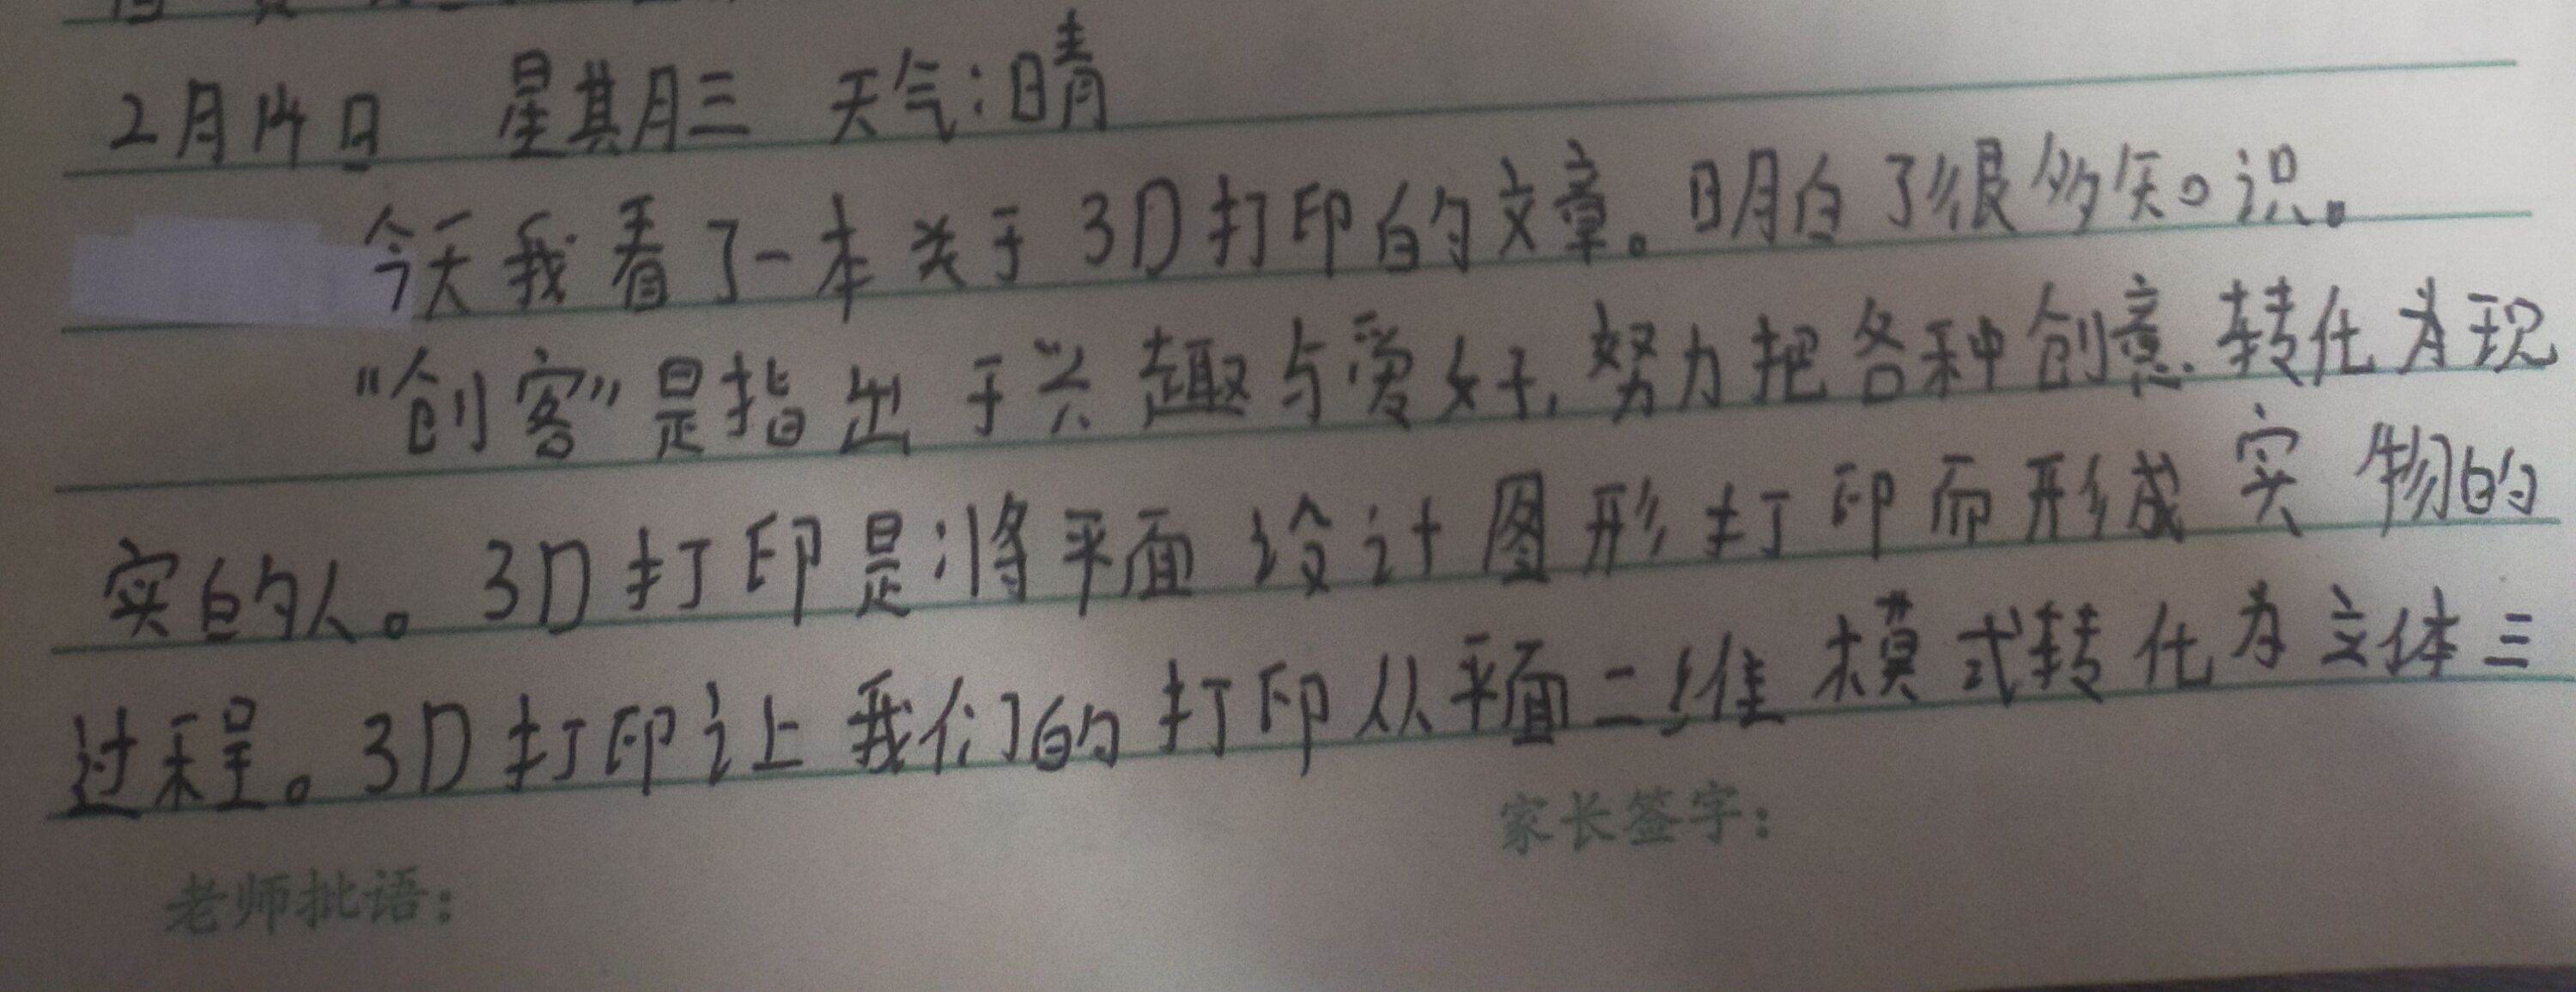 2月14日 星其月三 天气:晴
今天我看了一本关于3D打印的文章。明白了很多知识。
“创客”是指出于兴趣与爱好,努力把各种创意转化为现
实的人。3D打印是将平面设计图形打印而形成实物的
过程。3D打印让我们的打印从平面二维模式转化为立体三
家长签字:
老师批语: